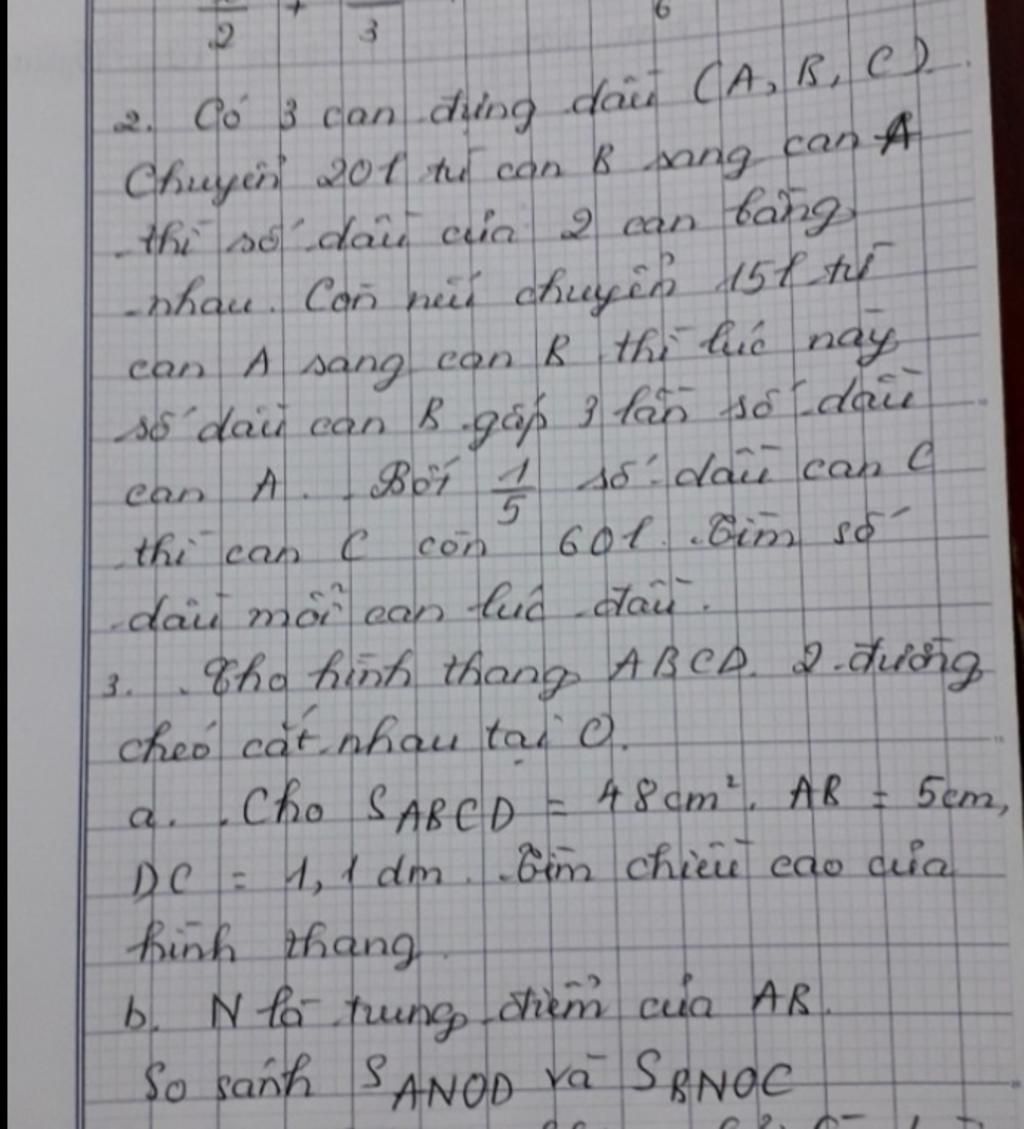 2 + 3 6
2. Có 3 can đựng dầu (A, B, C)
Chuyển 20l từ can B sang can A
thì số dầu của 2 can bằng
nhau. Còn nếu chuyển 15l từ
can A sang can B thì lúc này
số dầu can B gấp 3 lần số dầu
can A. Bớt 1/5 số dầu can C
thì can C còn 60l. Tìm số
dầu mỗi can lúc đầu.
3. Cho hình thang ABCD. 2 đường
chéo cắt nhau tại O.
a. Cho S ABCD = 48cm². AB = 5cm,
DC = 1,1 dm. Tìm chiều cao của
hình thang
b. N là trung điểm của AB.
So sánh S ANOD và S BNOC